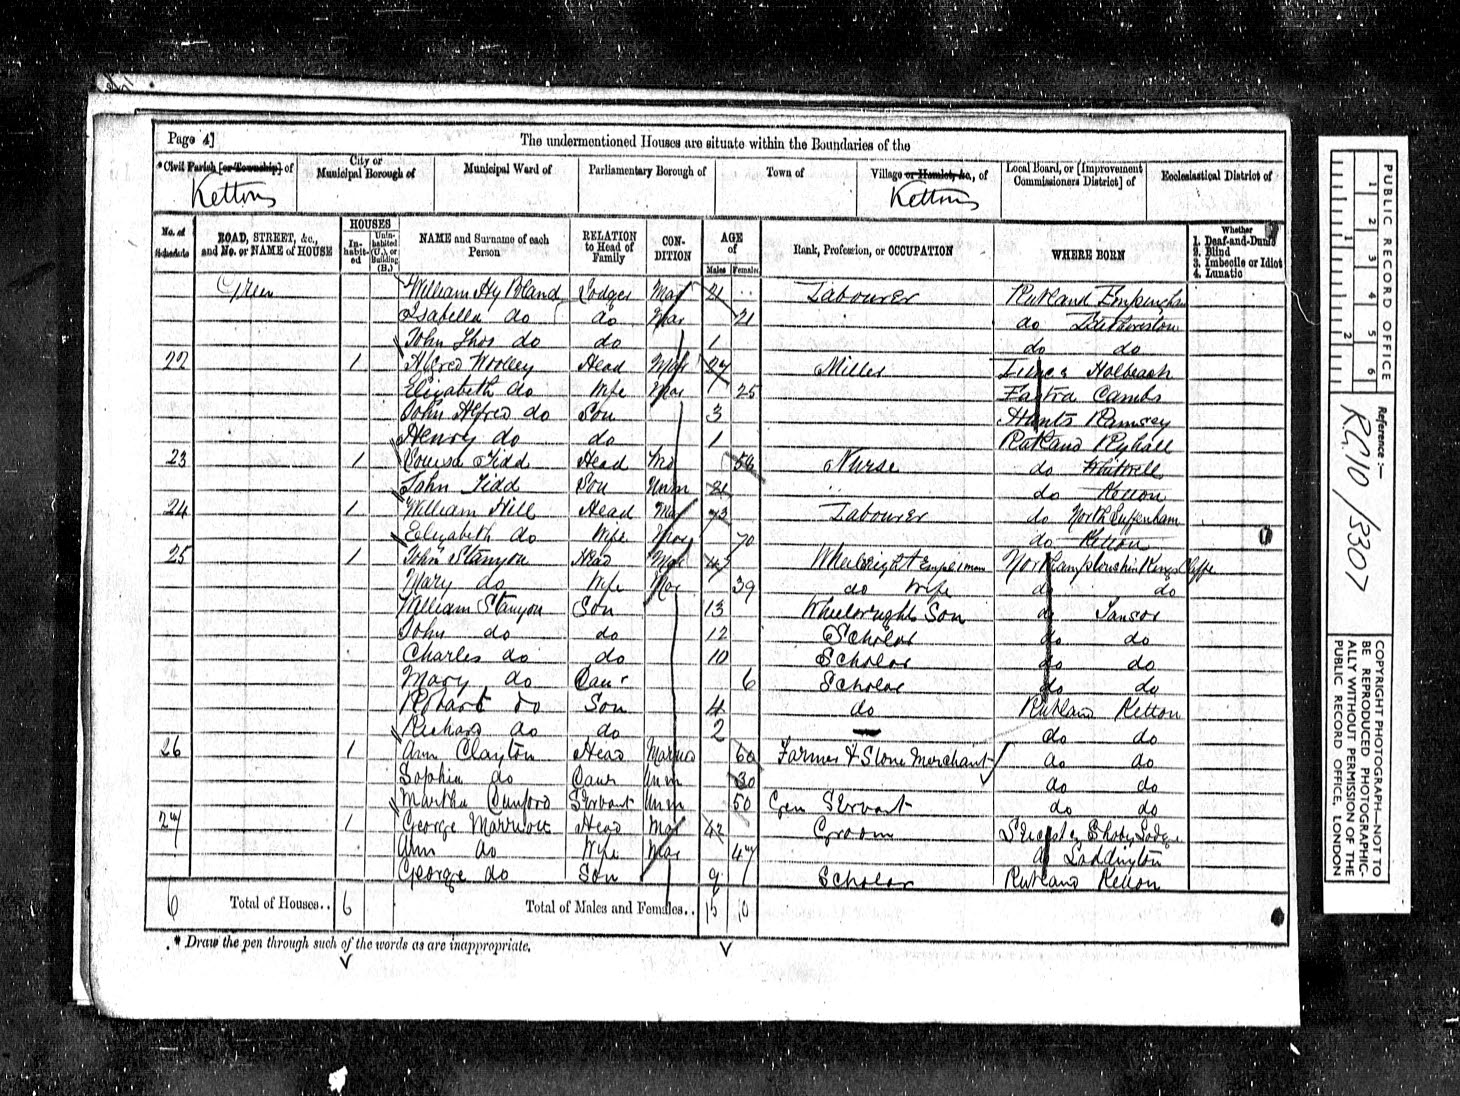 Page 4]
The undermentioned Houses are situate within the Boundaries of the
*Civil Parish [or Township] of
City or Municipal Borough of
Municipal Ward of
Parliamentary Borough of
Town of
Village or Hamlet, &c., of
Local Board, or [Improvement Commissioners District] of
Ecclesiastical District of
Ketton Ketton
No. of Schedule
ROAD, STREET, &c., and No. or NAME of HOUSE
HOUSES
In-habit-ed
Unin-habited (U.), or Building (B.)
NAME and Surname of each Person
RELATION to Head of Family
CON-DITION
AGE of
Males Females
Rank, Profession, or OCCUPATION
WHERE BORN
Whether
1. Deaf-and-Dumb
2. Blind
3. Imbecile or Idiot
4. Lunatic
Green William Hy Poland Lodger Mar 21 Labourer Rutland Empingham
Isabella do do Mar 21 do
John Thos do do 1 do do
22 1 Alfred Woolley Head Mar 27 Miller Holbeach
Elizabeth do Wife Mar 25 Cambs
John Alfred do Son 3 Hunts Ramsey
Henry do do 1 Rutland Ryhall
23 1 Louisa Tidd Head 56 Nurse do Whitwell
John Tidd Son Unm 21 do Ketton
24 1 William Hill Head Mar 73 Labourer do North Luffenham
Elizabeth do Wife Mar 70 do Ketton
25 1 John Stanyon Head Mar 45 Northamptonshire Kings Cliffe
Mary do Wife Mar 39 do Wife do do
William Stanyon Son 13 Wheelwrights Son do Tansor
John do do 12 Scholar do do
Charles do do 10 Scholar do do
Mary do Daur 6 Scholar do do
Robart do Son 4 do Rutland Ketton
Richard do do 2 do do
26 1 Ann Clayton Head Married 60 Farmer & Stone Merchant do do
Sophia do Daur Unm 30 do do
Martha Servant Unm 50 Gen Servant do do
27 1 George Marriott Head Mar 42 Groom Lodge
Ann do Wife Mar 47 do Loddington
George do Son 9 Scholar Rutland Ketton
6 Total of Houses.. 6 Total of Males and Females.. 15 10
* Draw the pen through such of the words as are inappropriate.
PUBLIC RECORD OFFICE
1 2 3 4 5 6
1 2
Reference :—
RG 10 / 3307
COPYRIGHT PHOTOGRAPH—NOT TO
BE REPRODUCED PHOTOGRAPHIC-
ALLY WITHOUT PERMISSION OF THE
PUBLIC RECORD OFFICE, LONDON